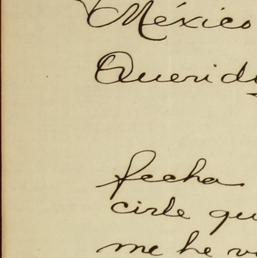 México
Querid
fecha
cirle qu
me he v